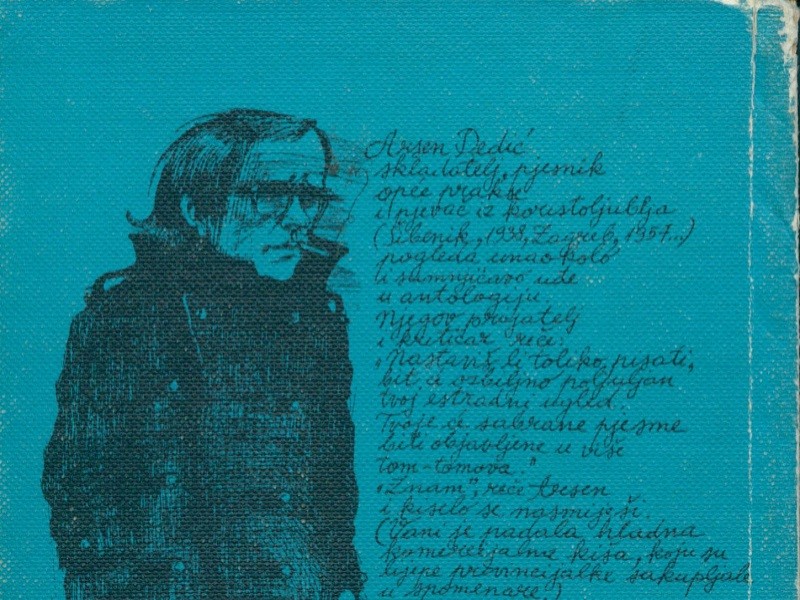 Arsen Dedić
skladatelj, pjesnik
opće prakse
i pjevač iz koristoljublja
(Šibenik, 1938, Zagreb, 1957..)
pogleda unaokolo
i sumnjičavo uđe
u antologiju.
Njegov prijatelj
i kritičar reče:
„Nastaviš li toliko pisati,
bit će ozbiljno poljuljan
tvoj estradni ugled.
Tvoje će sabrane pjesme
biti objavljene u više
tom-tomova."
„Znam", reče Arsen
i kiselo se nasmiješi.
(Vani je padala hladna
komercijalna kiša, koju su
lijepe provincijalke sakupljale
u spomenare.)